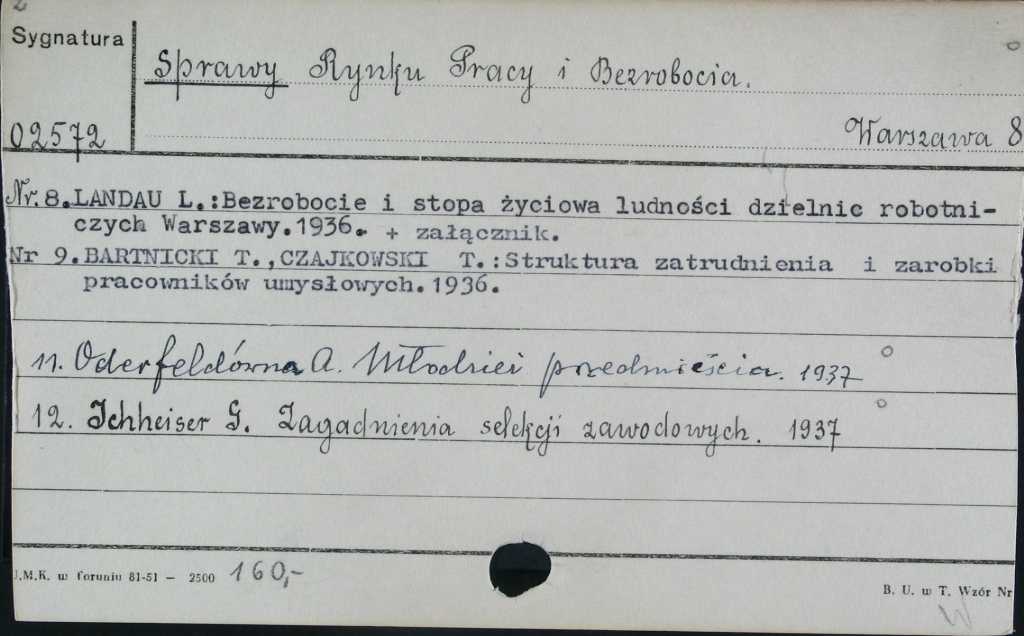 2
Sygnatura
Sprawy Rynku Pracy i Bezrobocia.
02572
Warszawa 8
Nr. 8. LANDAU L.: Bezrobocie i stopa życiowa ludności dzielnic robotni-
czych Warszawy. 1936. + załącznik.
Nr 9. BARTNICKI T., CZAJKOWSKI T.: Struktura zatrudnienia i zarobki
pracowników umysłowych. 1936.
11. Oderfeldówna A. Młodzież przedmieścia. 1937
12. Ichheiser G. Zagadnienia selekcji zawodowych. 1937
J.M.K. w foruniu 81-51 — 2500 160,-
B. U. w T. Wzór Nr
W